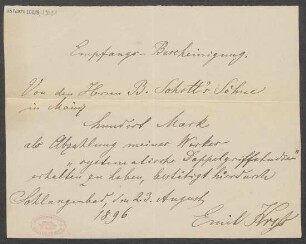 Empfangs-Bescheinigung.
Von den Herren B. Schott's Söhne
in Mainz
hundert Mark
als Abzahlung meines Werkes
„systematische Doppelgriffstudien"
erhalten zu haben, bestätigt hierdurch
Schlangenbad, den 23. August
1896
Emil